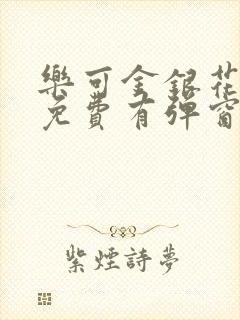 樂可金銀花
免費有彈窗
紫煙詩夢